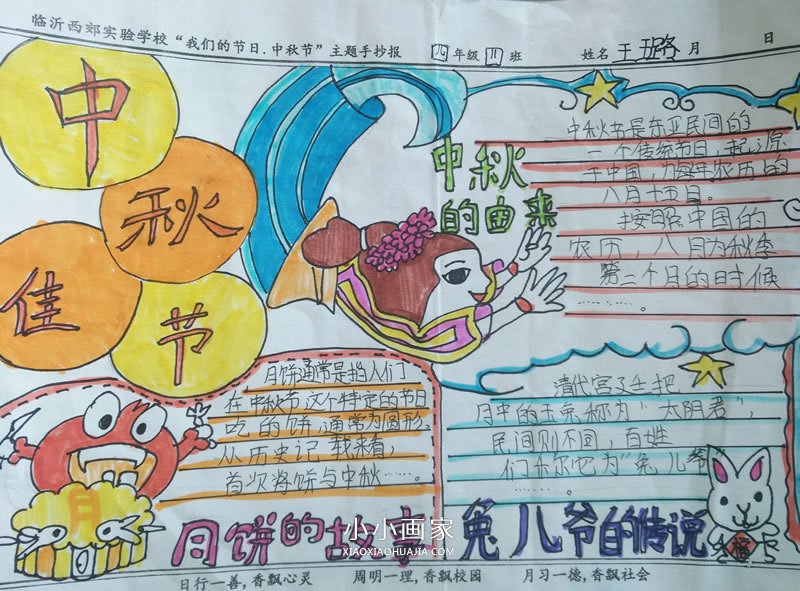 临沂西郊实验学校“我们的节日.中秋节”主题手抄报 四年级四班 姓名王璐 月 日
中
秋
佳
节
中秋
的由来
中秋节是东亚民间的
一个传统节日,起源
于中国,为每年农历的
八月十五日。
按照中国的
农历,八月为秋季
第二个月的时候
……。
月饼通常是指人们
在中秋节这个特定的节日
吃的饼,通常为圆形。
从历史记载来看,
首次将饼与中秋……。
月
月饼的故事
清代宫廷把
月中的玉兔称为“太阴君”,
民间则不同,百姓
们称它为“兔儿爷”
……。
兔儿爷的传说
福
小小画家
XIAOXIAOHUAJIA.COM
日行一善,香飘心灵 周明一理,香飘校园 月习一德,香飘社会